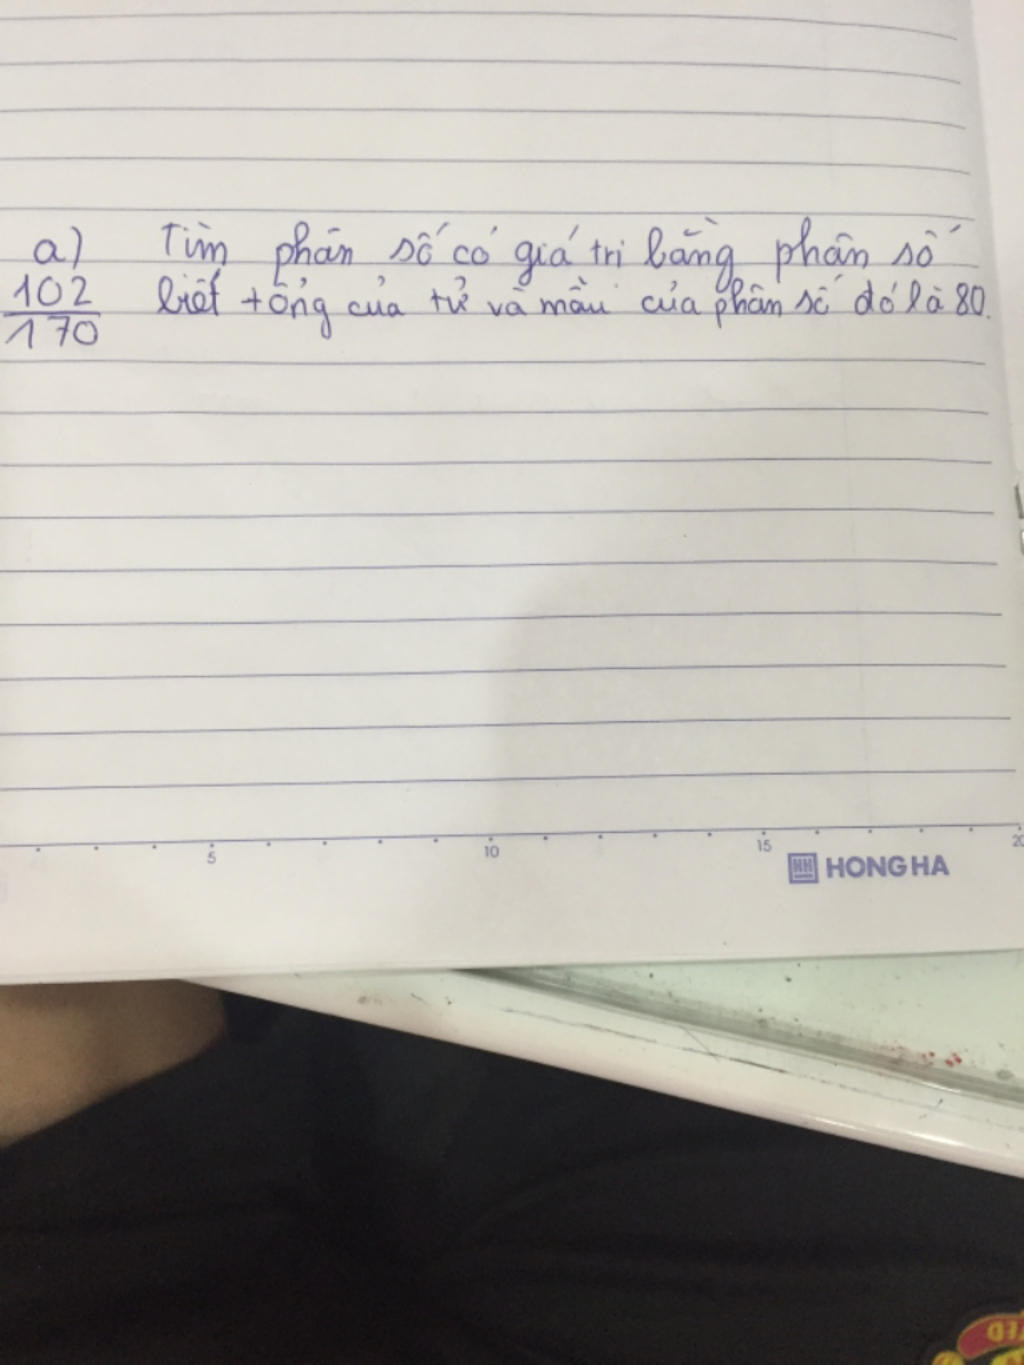 a) Tìm phân số có giá trị bằng phân số
102/170 biết tổng của tử và mẫu của phân số đó là 80.
5 10 15 20
HH HONG HA